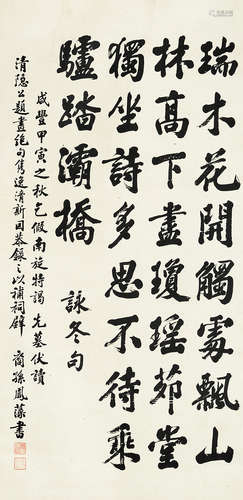 瑞木花開觸處飄山
林高下盡瓊瑤茆堂
獨坐詩多思不待乘
驢踏灞橋
詠冬句
咸豐甲寅之秋乞假南旋特謁 先墓伏讀
清隱公題畫絕句雋逸清新因恭錄之以補祠壁 裔孫鳳藻書